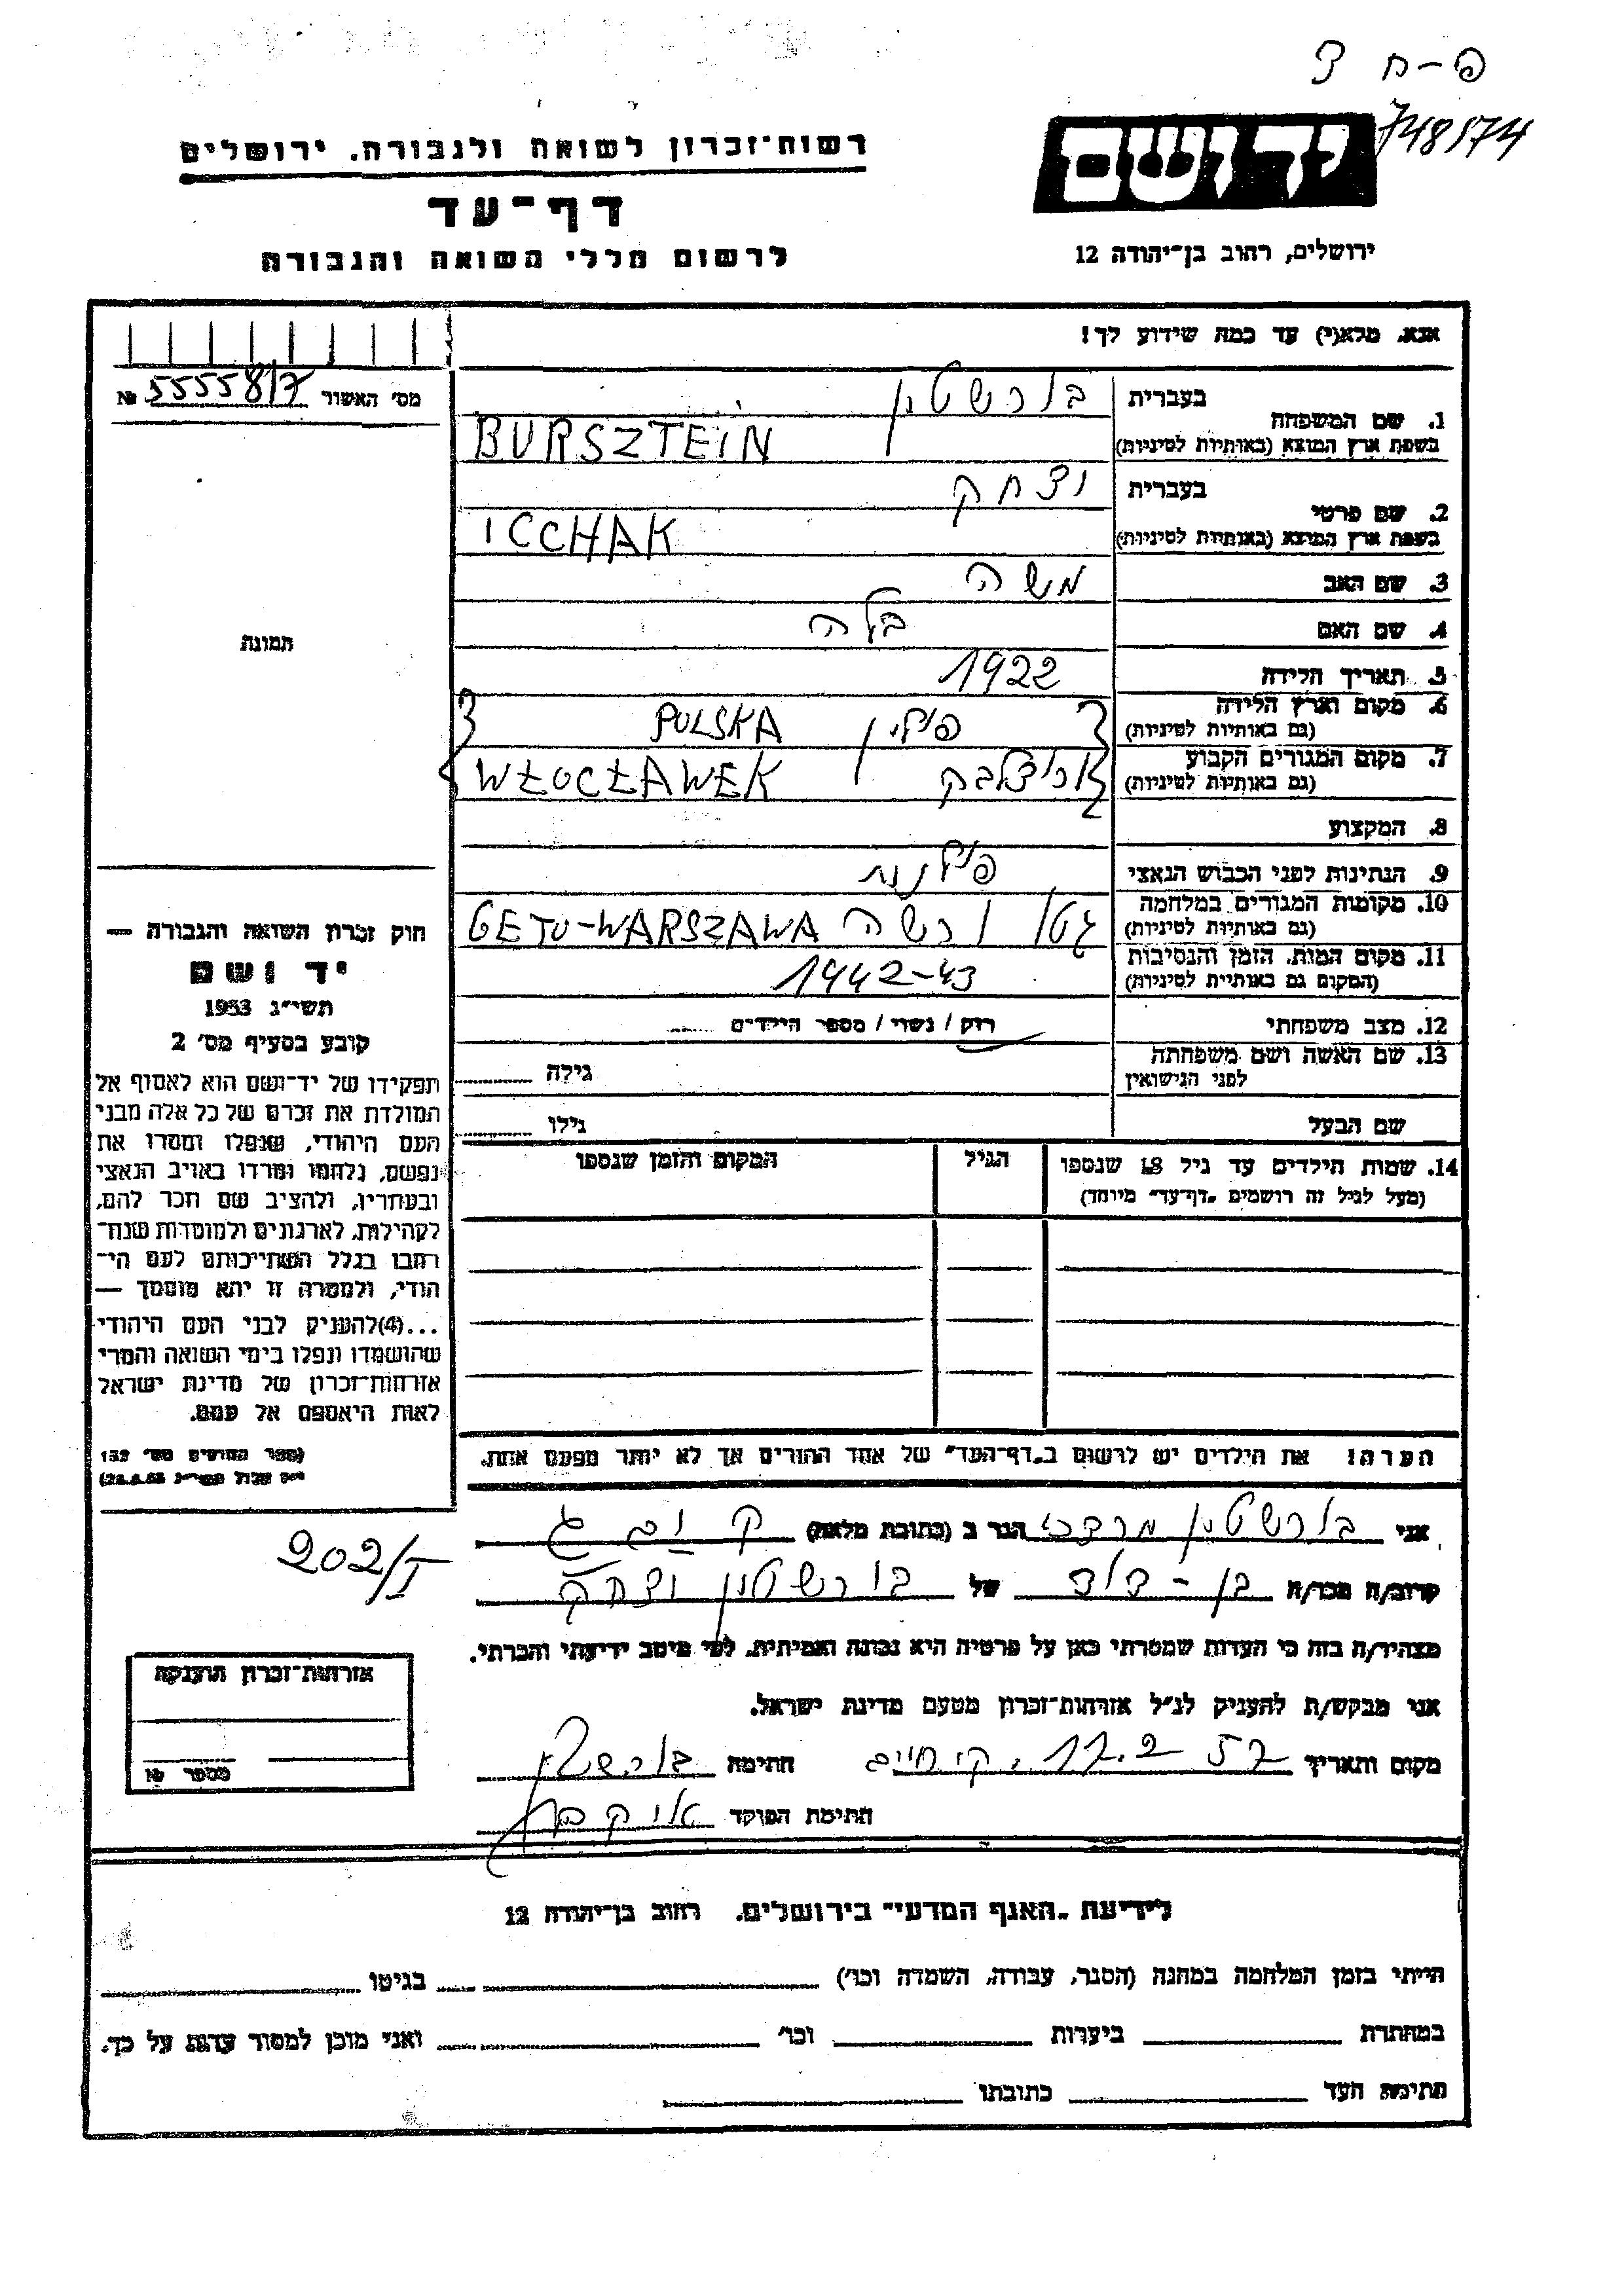 פ-ח 3
748174
יד ושם
ירושלים, רחוב בן־יהודה 12
רשות־זכרון לשואה ולגבורה. ירושלים
דף־עד
לרשום חללי השואה והגבורה
אנא, מלא(י) עד כמה שידוע לך!
מס׳ האשור 555581/7 №
תמונה
1. שם המשפחה
בעברית בורשטין
בשפת ארץ המוצא (באותיות לטיניות) BURSZTEIN
2. שם פרטי
בעברית יצחק
בשפת ארץ המוצא (באותיות לטיניות) ICCHAK
3. שם האב משה
4. שם האם בלה
5. תאריך הלידה 1922
6. מקום וארץ הלידה
(גם באותיות לטיניות) פולין POLSKA
7. מקום המגורים הקבוע
(גם באותיות לטיניות) WŁOCŁAWEK
8. המקצוע
9. הנתינות לפני הכבוש הנאצי פולנית
10. מקומות המגורים במלחמה
(גם באותיות לטיניות) גטו ורשה GETO-WARSZAWA
11. מקום המות, הזמן והנסיבות
(המקום גם באותיות לטיניות) 1942-43
12. מצב משפחתי רווק / נשוי / מספר הילדים
13. שם האשה ושם משפחתה
לפני הנישואין
גילה
שם הבעל גילו
14. שמות הילדים עד גיל 18 שנספו
(מעל לגיל זה רושמים „דף־עד״ מיוחד)
הגיל
המקום והזמן שנספו
הערה: את הילדים יש לרשום ב„דף־העד״ של אחד ההורים אך לא יותר מפעם אחת.
חוק זכרון השואה והגבורה —
יד ושם
תשי״ג 1953
קובע בסעיף מס׳ 2
תפקידו של יד־ושם הוא לאסוף אל
המולדת את זכרם של כל אלה מבני
העם היהודי, שנפלו ומסרו את
נפשם, נלחמו ומרדו באויב הנאצי
ובעוזריו, ולהציב שם וזכר להם,
לקהילות, לארגונים ולמוסדות שנח־
רבו בגלל השתייכותם לעם הי־
הודי, ולמטרה זו יהא מוסמך —
...(4)להעניק לבני העם היהודי
שהושמדו ונפלו בימי השואה והמרי
אזרחות־זכרון של מדינת ישראל
לאות היאספם אל עמם.
(ספר החוקים מס׳ 132
אני בורשטין מרדכי הגר ב (כתובת מלאה)
קרוב/ה מכר/ה בן-דוד של בורשטין יצחק
מצהיר/ה בזה כי העדות שמסרתי כאן על פרטיה היא נכונה ואמיתית, לפי מיטב ידיעתי והכרתי.
אני מבקש/ת להעניק לנ״ל אזרחות־זכרון מטעם מדינת ישראל.
מקום ותאריך קר׳ חיים, 17.2.57 חתימה
חתימת הפוקד
202/I
אזרחות־זכרון הוענקה
מספר №
לידיעת „האגף המדעי״ בירושלים. רחוב בן־יהודה 12
הייתי בזמן המלחמה במחנה (הסגר, עבודה, השמדה וכו׳) בגיטו
במחתרת ביערות וכו׳ ואני מוכן למסור עדות על כך.
חתימת העד כתובתו